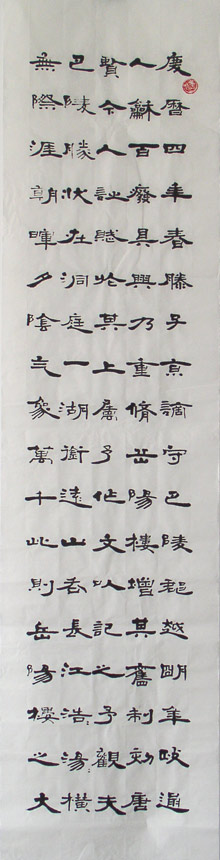 慶曆四年春滕子京謫守巴陵郡越明年政通
人龢百廢具興乃重脩岳陽樓增其舊制刻唐
賢今人詩賦於其上屬予作文以記之予觀夫
巴陵勝狀在洞庭一湖銜遠山吞長江浩〻湯〻橫
無際涯朝暉夕陰气象萬千此則岳陽樓之大